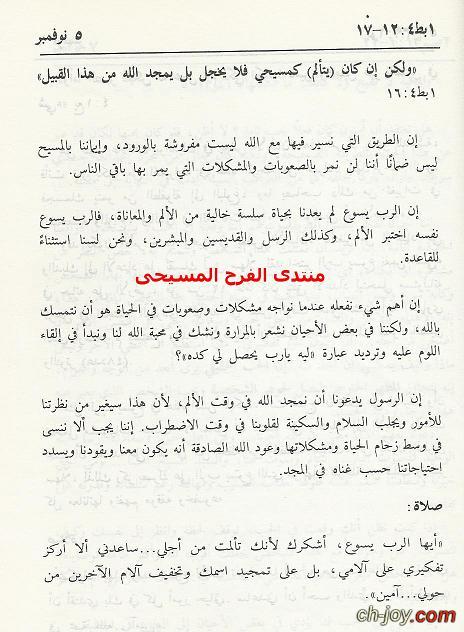 ١بط٤: ١٢-١٧
٥ نوفمبر
«ولكن إن كان (يتألم) كمسيحي فلا يخجل بل يمجد الله من هذا القبيل»
١بط٤: ١٦
إن الطريق التي نسير فيها مع الله ليست مفروشة بالورود، وإيماننا بالمسيح
ليس ضمانًا أننا لن نمر بالصعوبات والمشكلات التي يمر بها باقي الناس.
إن الرب يسوع لم يعدنا بحياة سلسة خالية من الألم والمعاناة، فالرب يسوع
نفسه اختبر الألم، وكذلك الرسل والقديسين والمبشرين، ونحن لسنا استثناءً
للقاعدة.
منتدى الفرح المسيحى
إن أهم شيء نفعله عندما نواجه مشكلات وصعوبات في الحياة هو أن نتمسك
بالله، ولكننا في بعض الأحيان نشعر بالمرارة ونشك في محبة الله لنا ونبدأ في إلقاء
اللوم عليه وترديد عبارة «ليه يارب يحصل لي كده»؟
إن الرسول يدعونا أن نمجد الله في وقت الألم، لأن هذا سيغير من نظرتنا
للأمور ويجلب السلام والسكينة لقلوبنا في وقت الاضطراب. إننا يجب ألا ننسى
في وسط زحام الحياة ومشكلاتها وعود الله الصادقة أنه يكون معنا ويقودنا ويسدد
احتياجاتنا حسب غناه في المجد.
صلاة:
«أيها الرب يسوع، أشكرك لأنك تألمت من أجلي...ساعدني ألا أركز
تفكيري على آلامي، بل على تمجيد اسمك وتخفيف آلام الآخرين من
حولي...آمين».
ch-joy.com